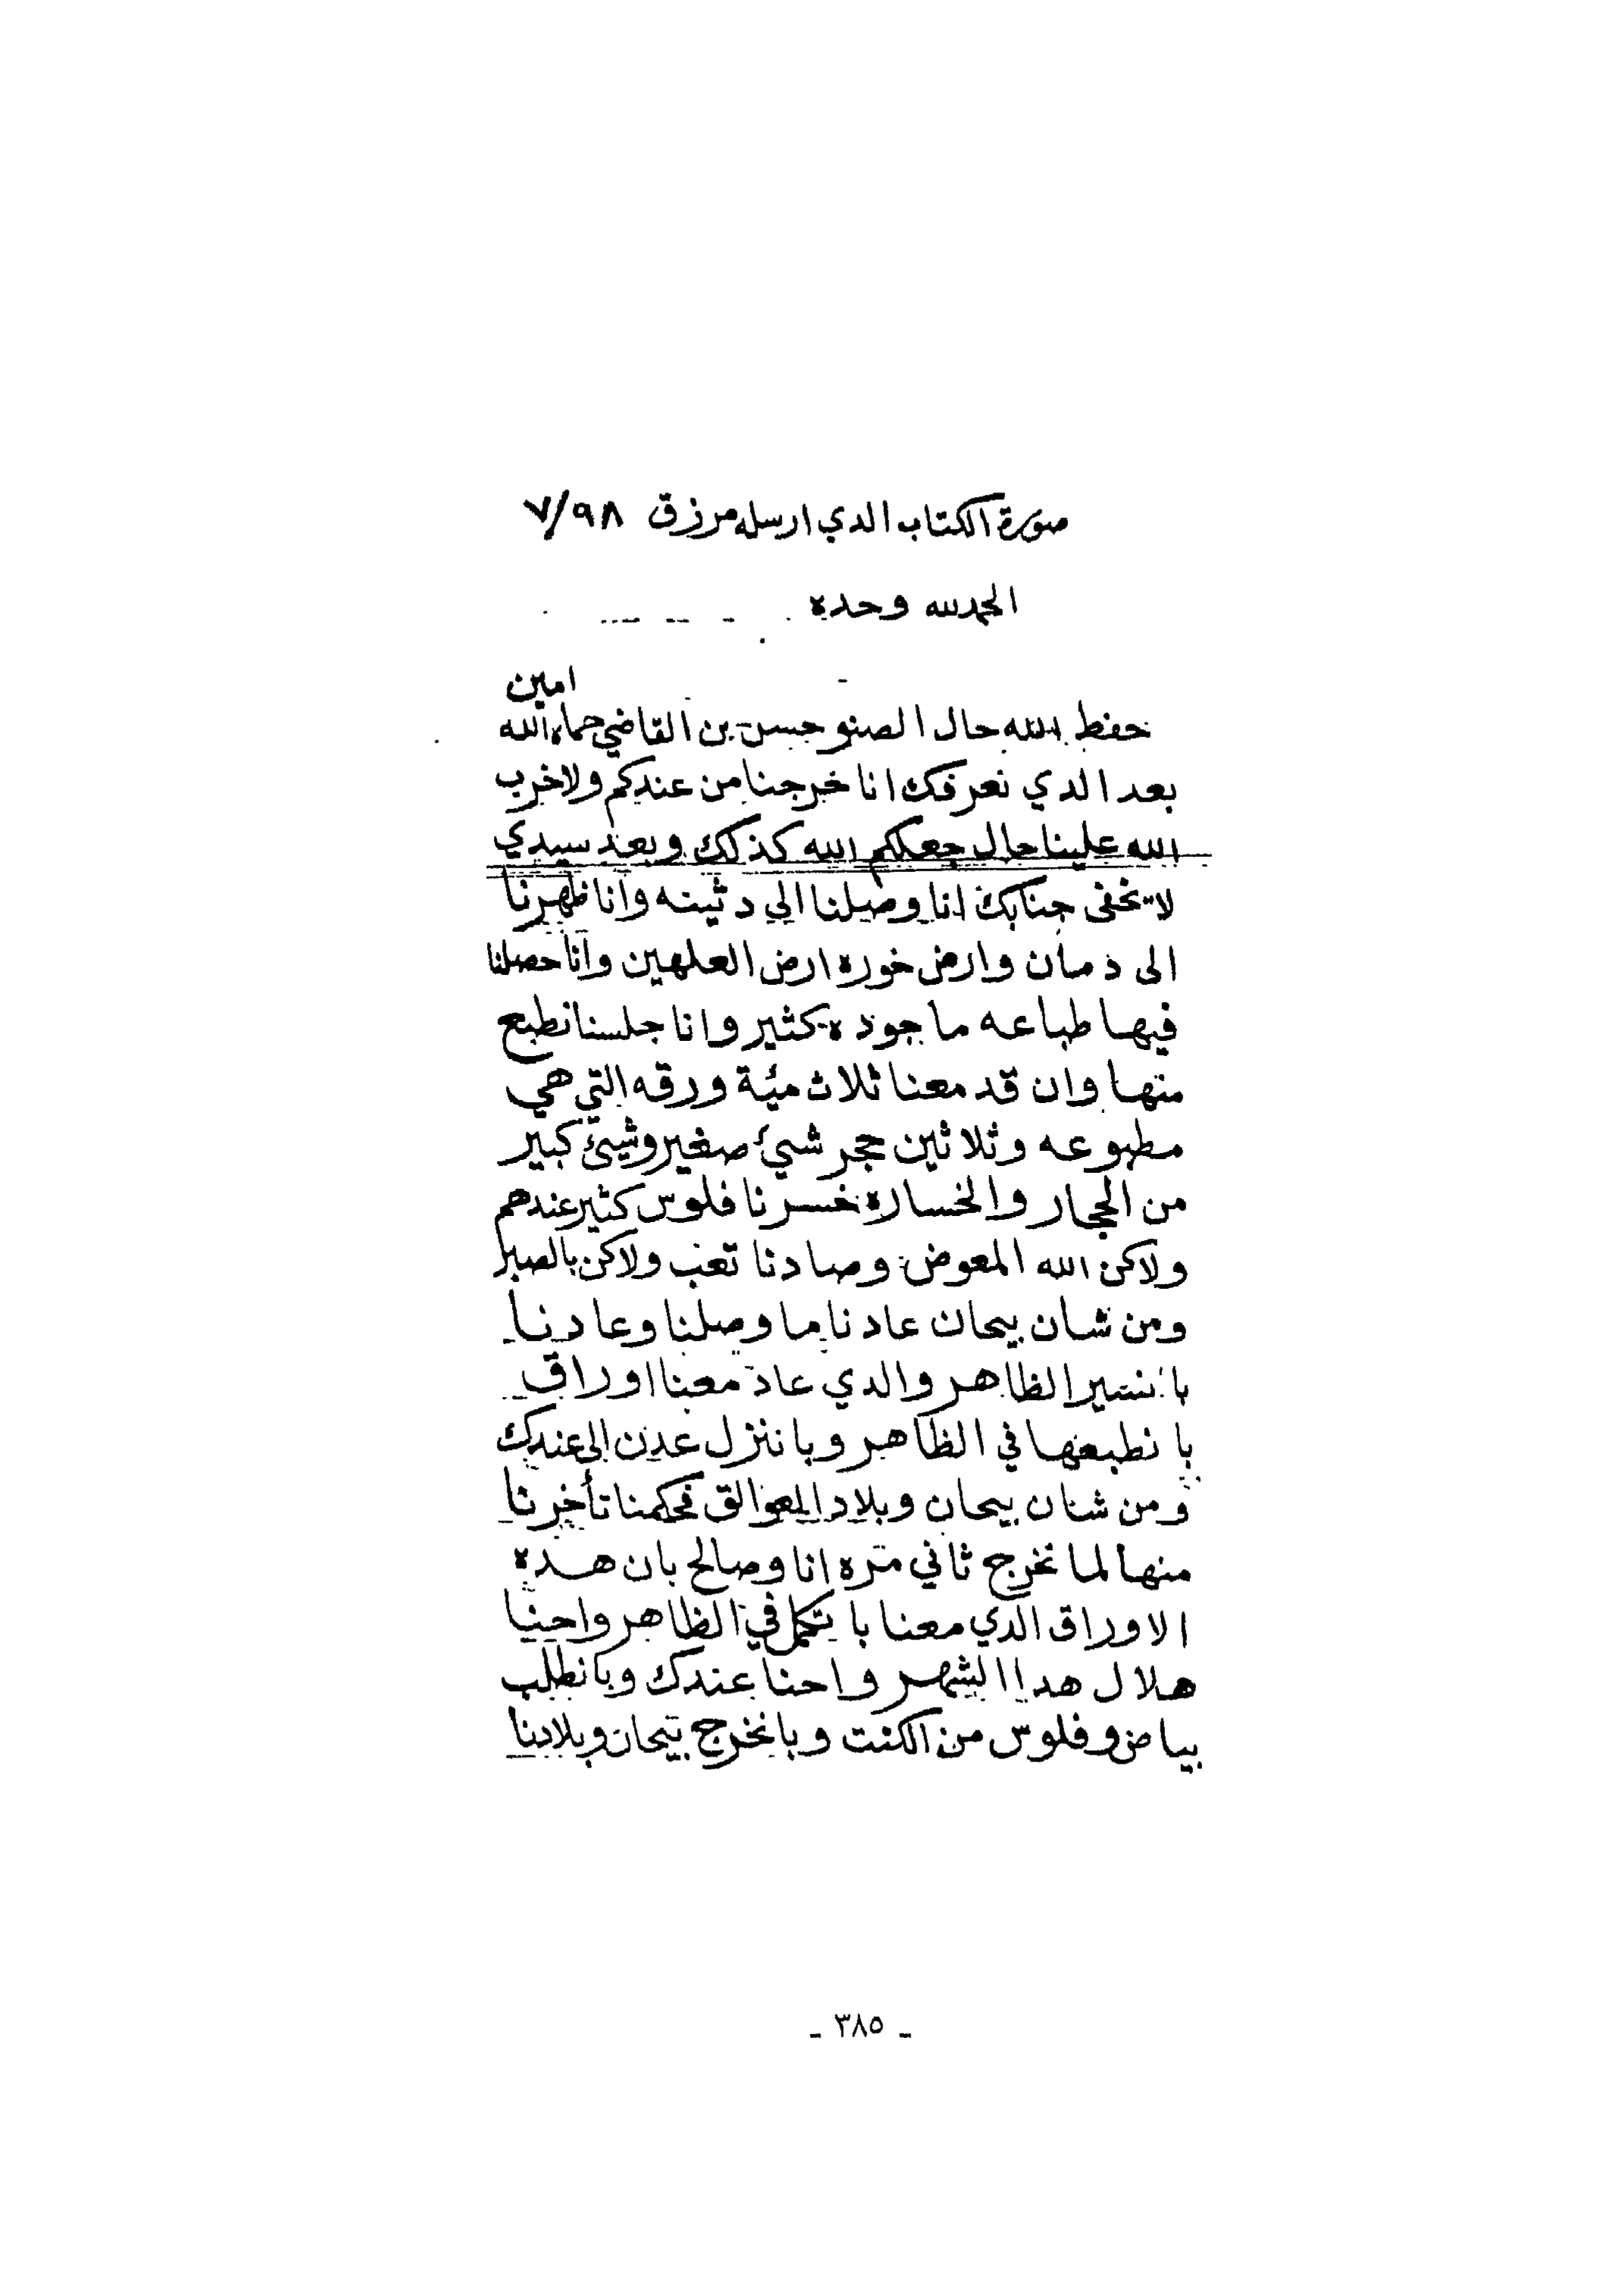 صورة الكتاب الدي ارسله مرزق ٧/٩٨
الحمدلله وحده
امين
حفظ الله حال الصنو حسن بن القاضي حماه الله
بعد الدي نعرفك انا خرجنا من عندكم ولاخرب
الله علينا حال جعلكم الله كذلك وبعد سيدي
لا تخفى جنابك انا وصلنا الى دثينه وانا ظهرنا
الى دمان وارض خوره ارض العلهين وانا حصلنا
فيها طباعه ماجوده كثير وانا جلسنا نطبع
منها وان قد معنا ثلاث مئة ورقه التي هي
مطبوعه وثلاثين حجر شيئ صغير وشيئ كبير
من الحجار والخساره خسرنا فلوس كثير عندهم
ولاكن الله المعوض وصادنا تعب ولاكن بالصبر
ومن شان بيحان عادنا ما وصلنا وعادنا
با نسير الظاهر والدي عاد معنا اوراق
با نطبعها في الظاهر وبا ننزل عدن الى عندك
ومن شان بيحان وبلاد العوالق فحكمنا تأخرنا
منها لما نخرج ثاني مره انا وصالح بان هده
الاوراق الدي معنا با تكمل في الظاهر واحنا
هلال هدا الشهر واحنا عندك وبا نطلب
بياض وفلوس من الكنت وبا نخرج بيحان وبلادنا
- ٣٨٥ -